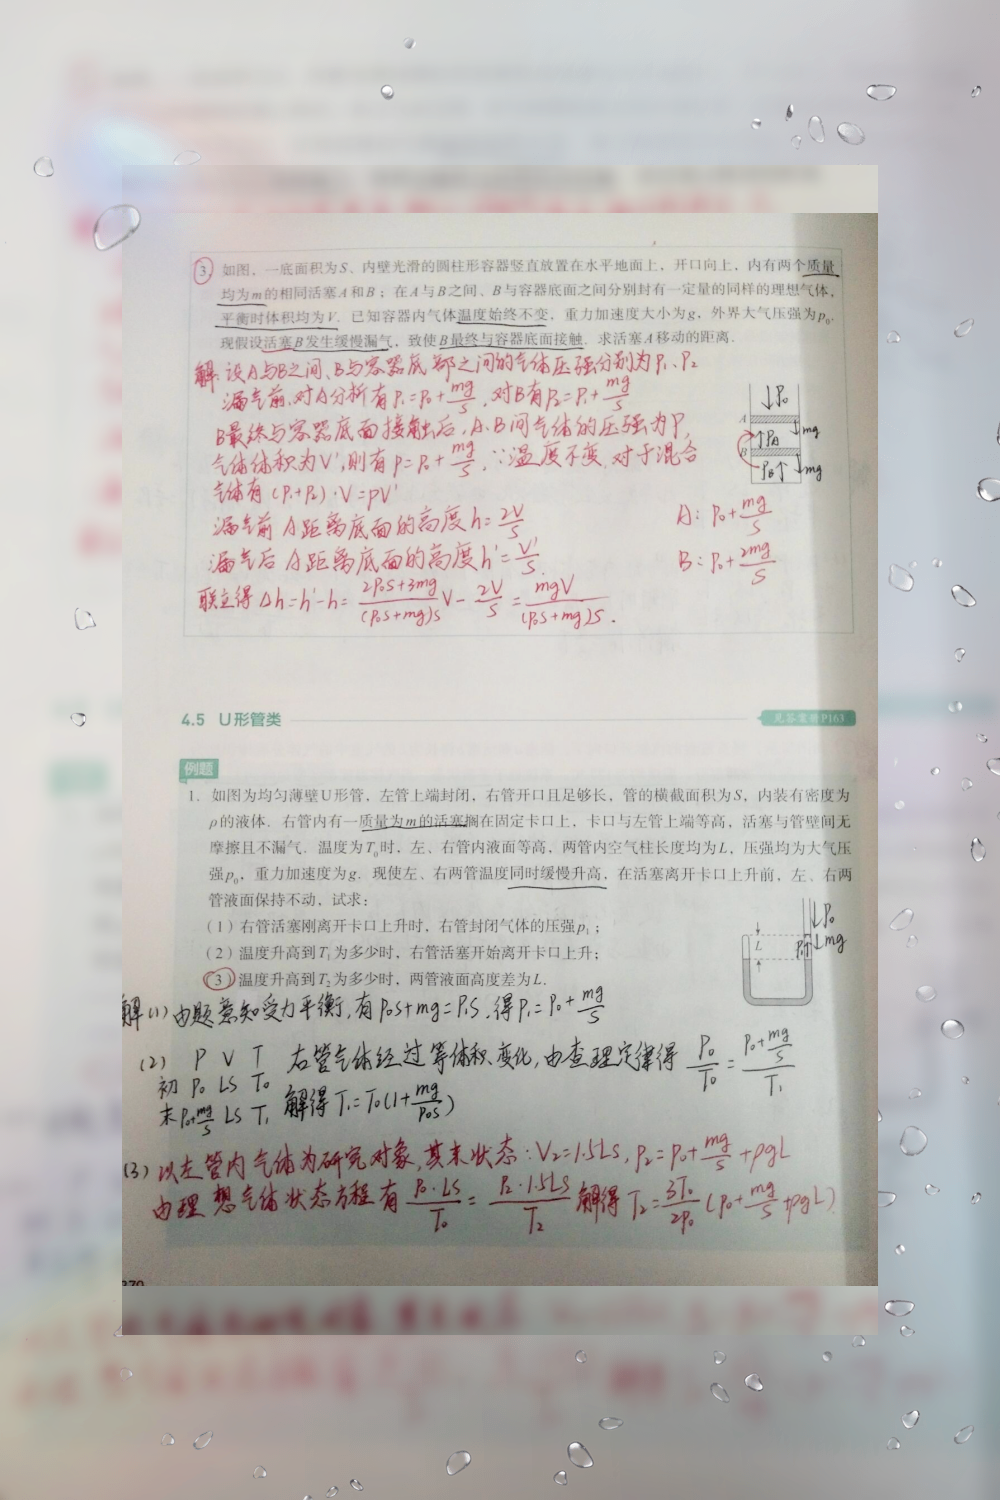 3. 如图，一底面积为S、内壁光滑的圆柱形容器竖直放置在水平地面上，开口向上，内有两个质量
均为m的相同活塞A和B；在A与B之间、B与容器底面之间分别封有一定量的同样的理想气体，
平衡时体积均为V．已知容器内气体温度始终不变，重力加速度大小为g，外界大气压强为p₀．
现假设活塞B发生缓慢漏气，致使B最终与容器底面接触．求活塞A移动的距离．
解：设A与B之间、B与容器底部之间的气体压强分别为P₁、P₂
漏气前，对A分析有P₁=P₀+mg/S，对B有P₂=P₁+mg/S
B最终与容器底面接触后，A、B间气体的压强为P，
气体体积为V'，则有P=P₀+mg/S，∵温度不变，对于混合
气体有(P₁+P₂)·V=PV'
漏气前A距离底面的高度h=2V/S
漏气后A距离底面的高度h'=V'/S
联立得Δh=h'-h=(2P₀S+3mg)/((P₀S+mg)S)V-2V/S=mgV/((P₀S+mg)S).
P₀
A
mg
PA
B
PB
mg
A: P₀+mg/S
B: P₀+2mg/S
4.5 U形管类
见答案册P163
例题
1. 如图为均匀薄壁U形管，左管上端封闭，右管开口且足够长，管的横截面积为S，内装有密度为
ρ的液体．右管内有一质量为m的活塞搁在固定卡口上，卡口与左管上端等高，活塞与管壁间无
摩擦且不漏气．温度为T₀时，左、右管内液面等高，两管内空气柱长度均为L，压强均为大气压
强p₀，重力加速度为g．现使左、右两管温度同时缓慢升高，在活塞离开卡口上升前，左、右两
管液面保持不动，试求：
(1) 右管活塞刚离开卡口上升时，右管封闭气体的压强p₁；
(2) 温度升高到T₁为多少时，右管活塞开始离开卡口上升；
(3) 温度升高到T₂为多少时，两管液面高度差为L．
P₀
L
mg
解(1)由题意知受力平衡，有P₀S+mg=P₁S，得P₁=P₀+mg/S
(2) P V T 右管气体经过等体积变化，由查理定律得 P₀/T₀=(P₀+mg/S)/T₁
初 P₀ LS T₀
末 P₀+mg/S LS T₁ 解得T₁=T₀(1+mg/P₀S)
(3) 以左管内气体为研究对象，其末状态：V₂=1.5LS，P₂=P₀+mg/S+ρgL
由理想气体状态方程有 P₀·LS/T₀=P₂·1.5LS/T₂ 解得T₂=3T₀/2P₀(P₀+mg/S+ρgL)